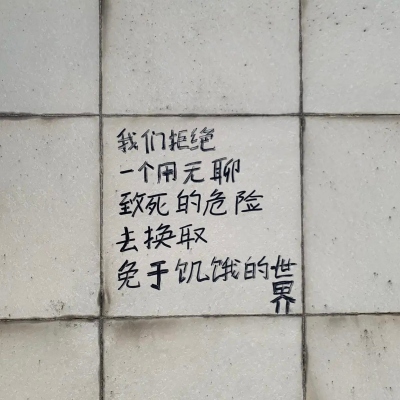 我们拒绝
一个用无聊
致死的危险
去换取
免于饥饿的世
界